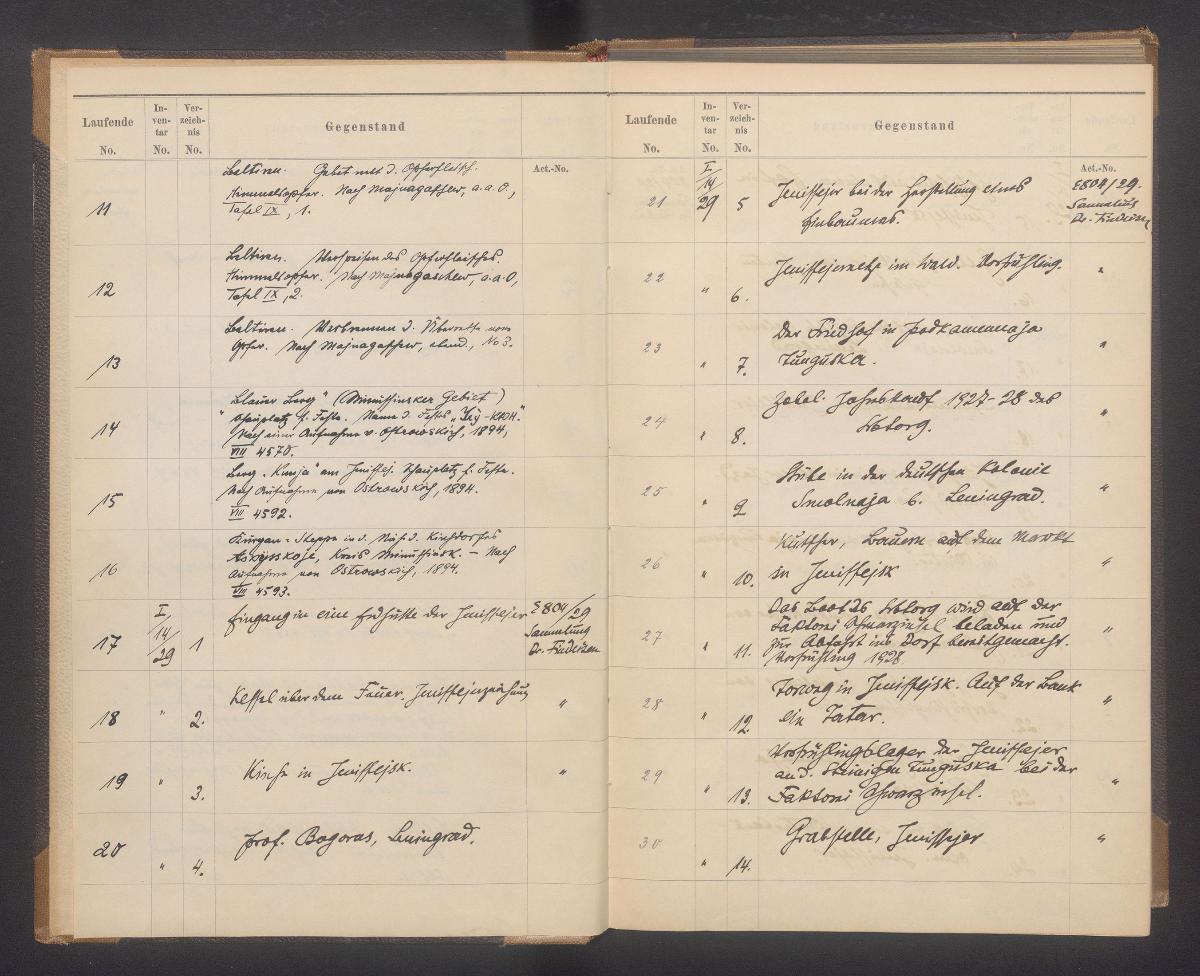 Laufende No. In-ven-tar No. Ver-zeich-nis No. Gegenstand
Act.-No.
11 Beltiren. Gebet mit d. Opferfleisch.
Himmelsopfer. Nach Majnagaschew, a.a.O.,
Tafel IX, 1.
12 Beltiren. Verspeisen des Opferfleisches.
Himmelsopfer. Nach Majnagaschew, a.a.O,
Tafel IX, 2.
13 Beltiren. Verbrennen d. Überreste vom
Opfer. Nach Majnagaschew, ebend., No 3.
14 "Blauer Berg" (Minussinsker Gebiet)
Schauplatz f. Feste. Name d. Festes
Nach einer Aufnahme v. Ostrowskich, 1894,
VIII 4570.
15 Berg "Kunja" am Jenissej. Schauplatz f. Feste.
Nach Aufnahme von Ostrowskich, 1894.
VIII 4592.
16 Kurgan-Steppe in d. Näh. d. Kirchdorfes
Askysskoje, Kreis Minussinsk. – Nach
Aufnahme von Ostrowskich, 1894.
VIII 4593.
17 I 14/29 1 Eingang in eine Erdhütte der Jenissejer E 804/29
Sammlung
Dr. Findeisen
18 " 2. Kessel über dem Feuer. "
19 " 3. Kirche in Jenissejsk. "
20 " 4. Prof. Bogoras, Leningrad.
Laufende No. In-ven-tar No. Ver-zeich-nis No. Gegenstand
Act.-No.
21 I 14/29 5 Jenissejer bei der Herstellung eines
Einbaumes.
E804/29.
Sammlung
Dr. Findeisen
22 " 6. Jenissejernetze im Wald. Vorfrühling. "
23 " 7. Der Friedhof in Podkamennaja
Tunguska. "
24 " 8. Zobel. Jahrskauf 1927-28 des
Gostorg. "
25 " 9 Stube in der deutschen Kolonie
Smolnaja b. Leningrad. "
26 " 10. Kutscher, Bauern auf dem Markt
in Jenissejsk "
27 " 11. Das Boot des Gostorg wird auf der
Faktorei Schwarzinsel beladen und
zur Abfahrt ins Dorf bereitgemacht.
Vorfrühling 1928. "
28 " 12. Torweg in Jenissejsk. Auf der Bank
ein Tatar. "
29 " 13. Vorfrühlingslager der Jenissejer
an d. Steinigen Tunguska bei der
Faktorei Schwarzinsel. "
30 " 14. Grabstelle, Jenissejer "